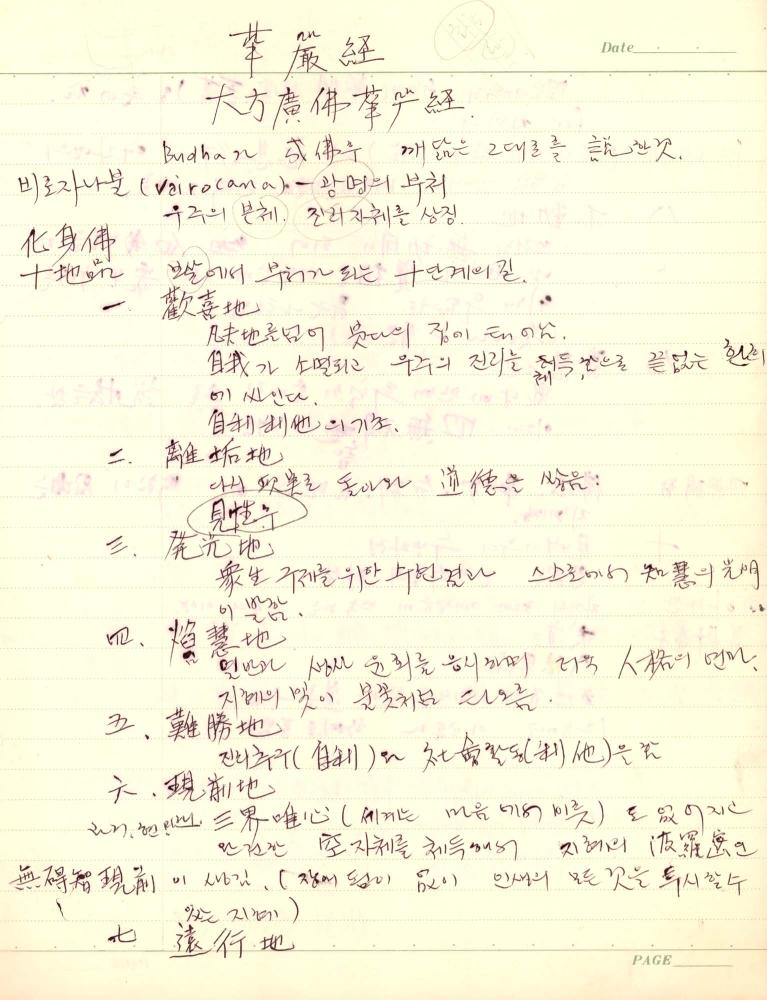 Date
華嚴経
大方廣佛華严経.
Budha가 成佛후 깨닮은 그대로를 説한것.
비로자나불 (Vairocana) - 광명의 부처
우주의 본체, 진리자체를 상징.
化身佛
十地品 보살에서 부처가 되는 十단계의 길.
一 歡喜地
凡夫地를넘어 붓다의 집이 태어남.
自我가 소멸되고 우주의 진리를 체득함으로 끝없는 환희
에 싸인다.
自利利他의 기초.
二. 離垢地
다시 現実로 돌아와 道德을 쌓음.
見性후
三. 発光地
衆生 구제를 위한 수현결과 스스로에서 知慧의 光明
이 발함.
四. 焰慧地
열반과 생사 윤회를 응시하며 더욱 人格의 연마.
지혜의 빛이 불꽃처럼 타오름.
五. 難勝地
진리추구(自利)와 社會활동(利他)을 함
六. 現前地
과거, 현 미래. 三界唯心 (세계는 마음에서 이룻) 도 없어지고
완전한 空자체를 체득해서 지혜의 波羅蜜인
無碍智現前이 생김. (장애 없이 인생의 모든것을 투시할수
있는 지혜)
七 遠行地
PAGE